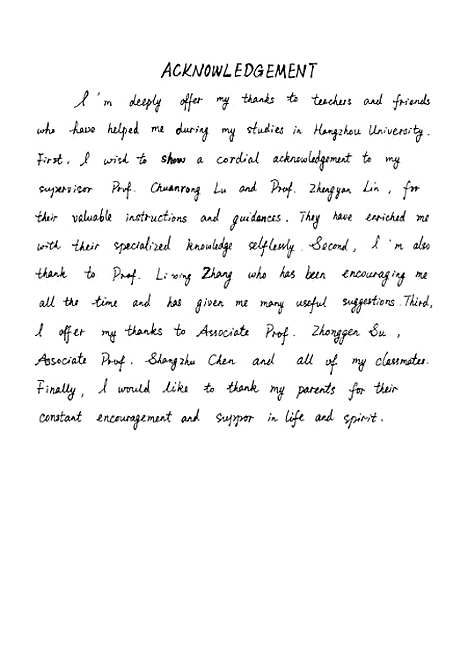 ACKNOWLEDGEMENT
I'm deeply offer my thanks to teachers and friends
who have helped me during my studies in Hangzhou University.
First, I wish to show a cordial acknowledgement to my
supervisor Prof. Chuanrong Lu and Prof. Zhengyan Lin, for
their valuable instructions and guidances. They have enriched me
with their specialized knowledge selflessly. Second, I'm also
thank to Prof. Lixing Zhang who has been encouraging me
all the time and has given me many useful suggestions. Third,
I offer my thanks to Associate Prof. Zhonggen Su,
Associate Prof. Shangzhu Chen and all of my classmates.
Finally, I would like to thank my parents for their
constant encouragement and suppor in life and spirit.